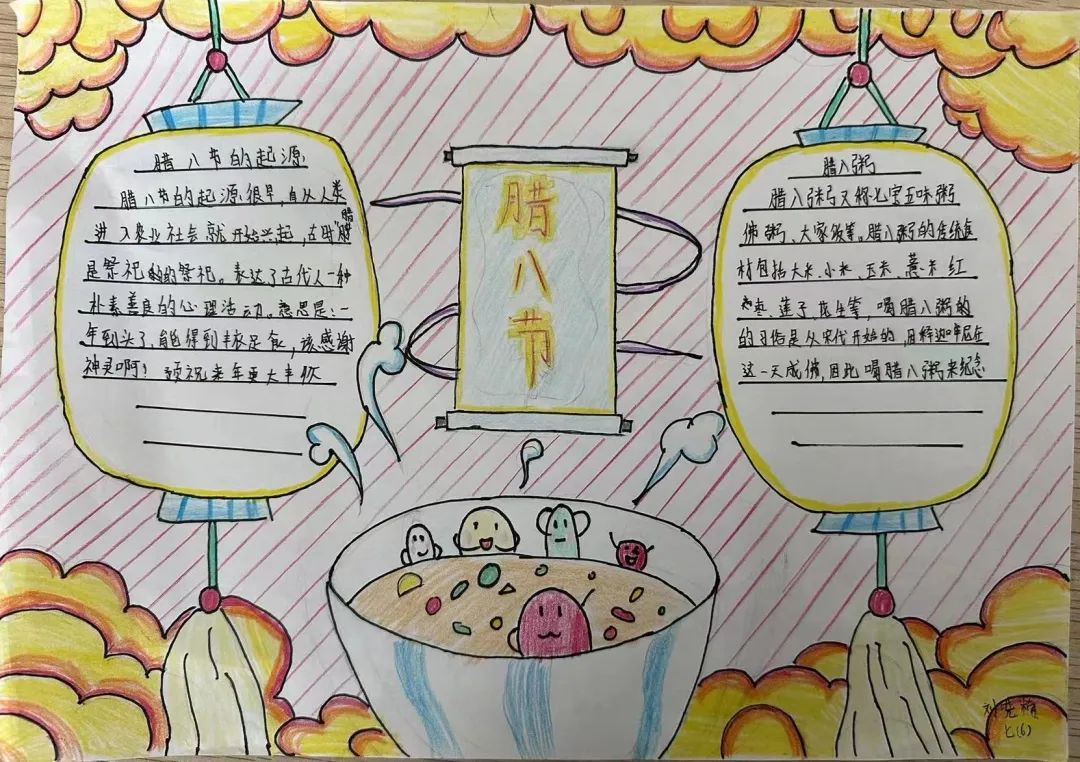 腊八节的起源
腊八节的起源很早,自从人类
进入农业社会就开始兴起,古时"腊"
是祭祀的祭祀。表达了古代人一种
朴素善良的心理活动。意思是:一
年到头了,能得到丰衣足食,该感谢
神灵啊!预祝来年更大丰收
腊八节
腊八粥
腊八粥又称七宝五味粥
佛粥、大家饭等。腊八粥的传统食
材包括大米、小米、玉米、薏米、红
枣、莲子、花生等,喝腊八粥的
的习俗是从宋代开始的,因释迦牟尼在
这一天成佛,因此喝腊八粥来纪念
七(6)